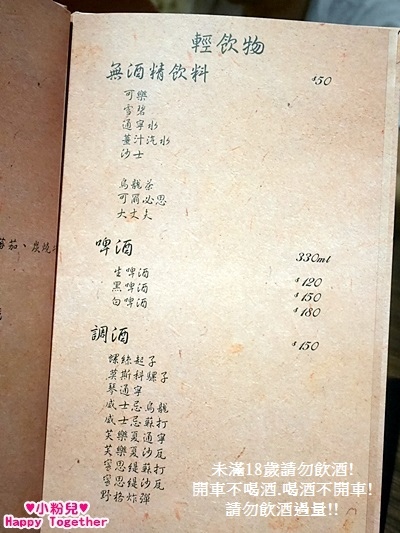 輕飲物
無酒精飲料 $50
可樂
雪碧
通寧水
薑汁汽水
沙士
烏龍茶
可爾必思
大丈夫
啤酒 330ml
生啤酒 $120
黑啤酒 $150
白啤酒 $180
調酒 $150
螺絲起子
莫斯科騾子
琴通寧
威士忌烏龍
威士忌蘇打
芙樂夏通寧
芙樂夏沙瓦
寧思緹蘇打
寧思緹沙瓦
野格炸彈
蕃茄、炭燒
未滿18歲請勿飲酒!
開車不喝酒.喝酒不開車!
請勿飲酒過量!!
♥小粉兒♥
Happy Together